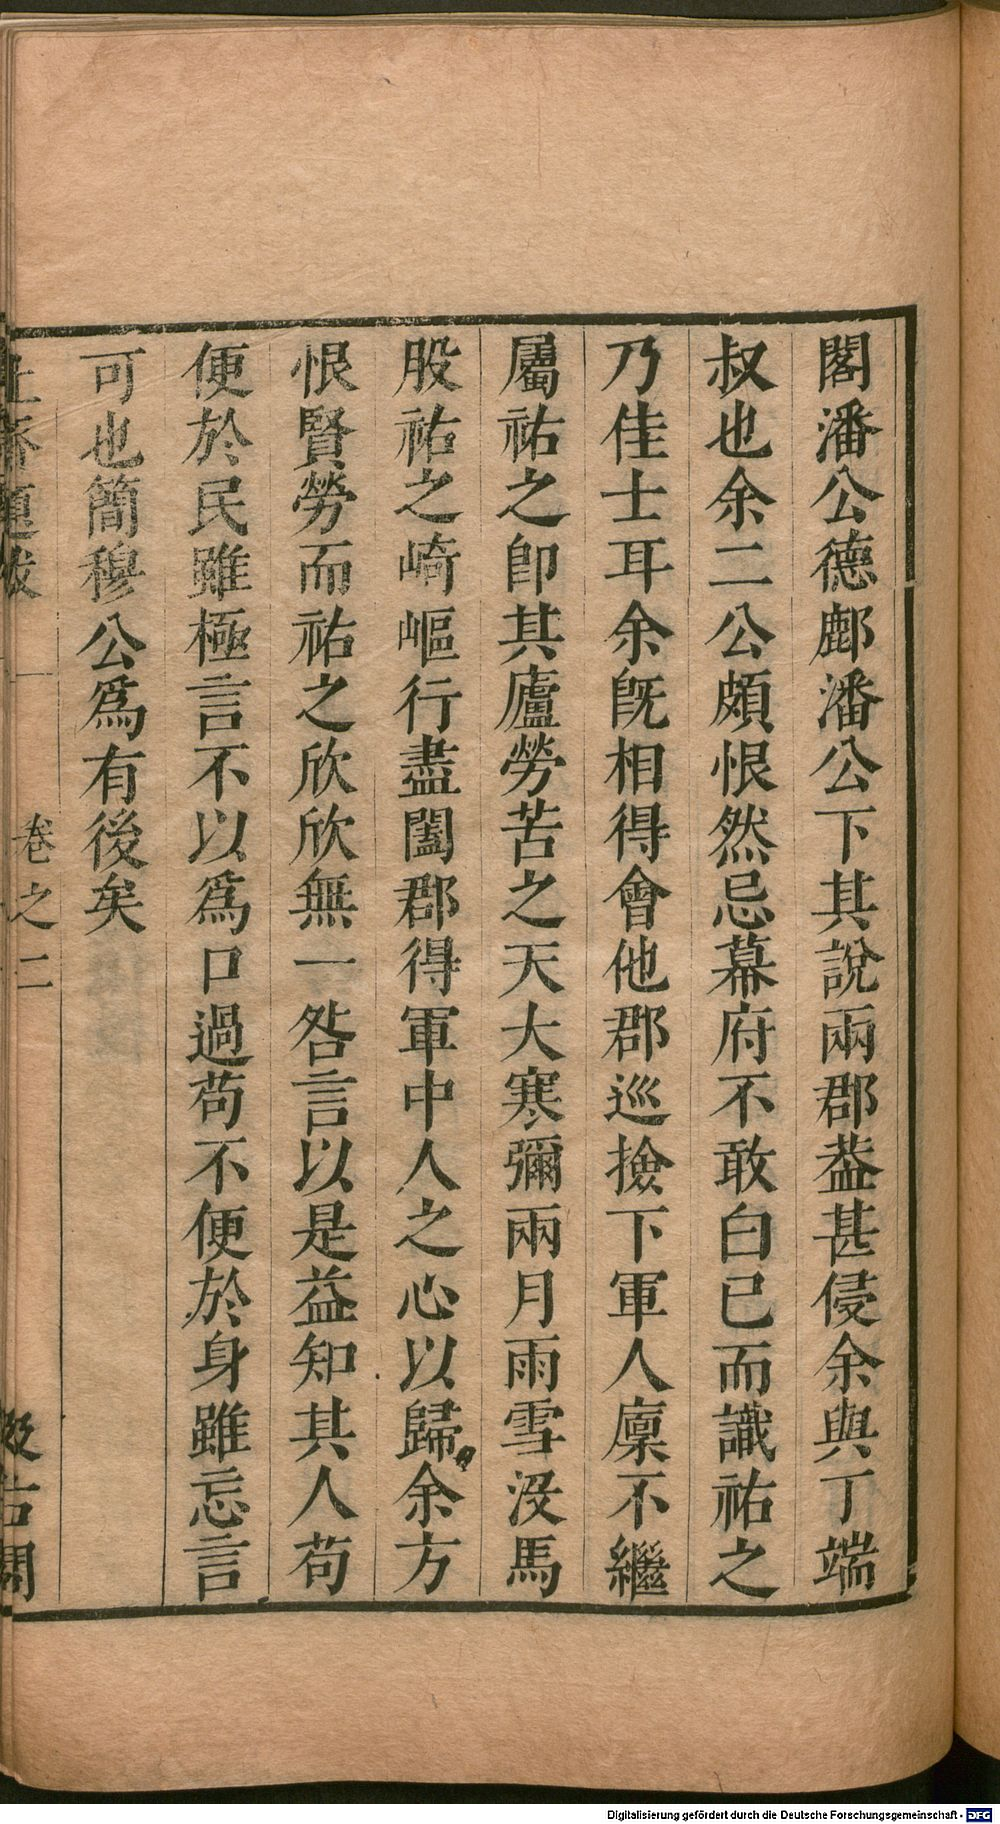 閣潘公德鄜潘公下其說兩郡葢甚侵余與丁端
叔也余二公頗恨然忌幕府不敢白已而識祐之
乃佳士耳余旣相得會他郡巡撿下軍人廩不繼
屬祐之卽其廬勞苦之天大寒彌兩月雨雪沒馬
股祐之崎嶇行盡闔郡得軍中人之心以歸余方
恨賢勞而祐之欣欣無一咎言以是益知其人苟
便於民雖極言不以爲口過苟不便於身雖忘言
可也簡穆公爲有後矣
卷之二
Digitalisierung gefördert durch die Deutsche Forschungsgemeinschaft - DFG